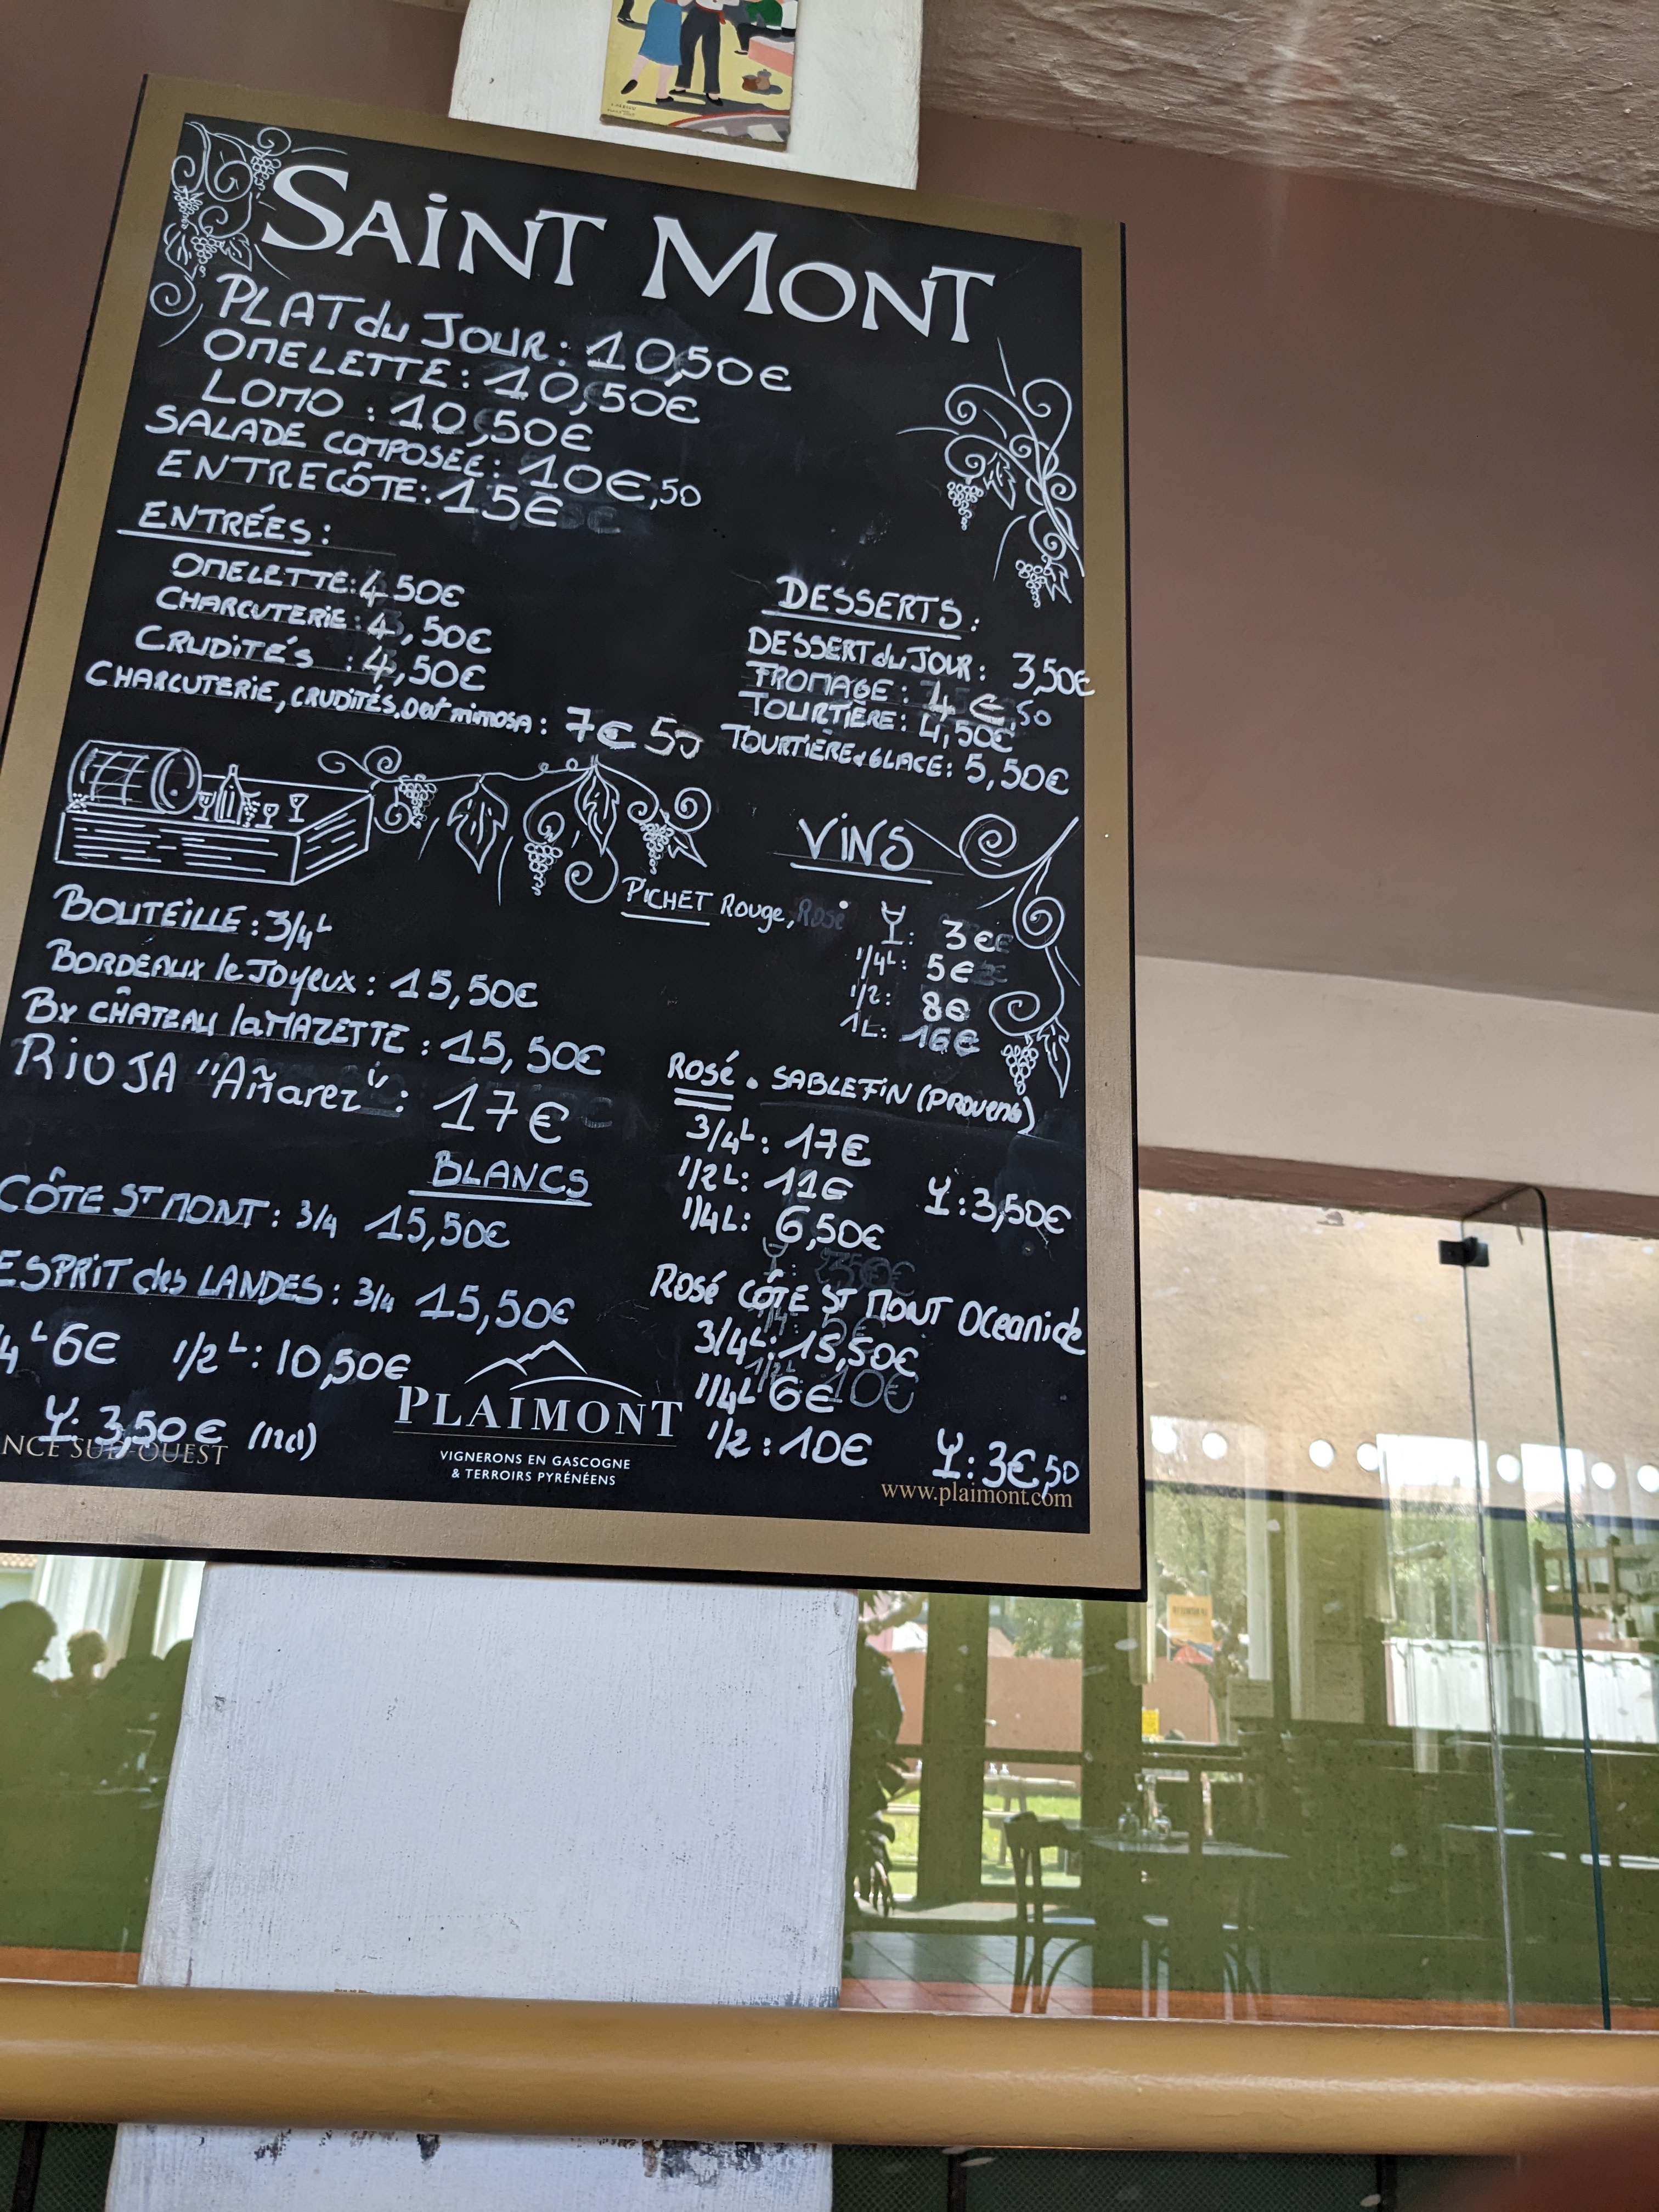 SAINT MONT
PLAT du JOUR : 10,50€
OMELETTE : 10,50€
LOMO : 10,50€
SALADE COMPOSÉE : 10€,50
ENTRECÔTE : 15€
ENTRÉES :
OMELETTE : 4,50€
CHARCUTERIE : 4,50€
CRUDITÉS : 4,50€
CHARCUTERIE, CRUDITÉS, Oeuf mimosA : 7€50
DESSERTS :
DESSERT du JOUR : 3,50€
FROMAGE : 4€,50
TOURTIÈRE : 4,50€
TOURTIÈRE & GLACE : 5,50€
VINS
PICHET Rouge, Rosé
: 3€
1/4L : 5€
1/2 : 8€
1L : 16€
BOUTEILLE : 3/4L
BORDEAUX le JOYEUX : 15,50€
Bx CHÂTEAU la MAZETTE : 15,50€
RIOJA "Añarez" : 17€
BLANCS
CÔTE ST MONT : 3/4 15,50€
ESPRIT des LANDES : 3/4 15,50€
/4 L 6€ 1/2 L : 10,50€
: 3,50€
NCE SUD OUEST
ROSÉ . SABLE FIN (PROVENCE)
3/4L : 17€
1/2L : 11€
: 3,50€
1/4L : 6,50€
Rosé CÔTE ST MONT Oceanide
3/4L : 15,50€
1/4L 6€
1/2 : 10€
: 3€,50
PLAIMONT
VIGNERONS EN GASCOGNE
& TERROIRS PYRÉNÉENS
www.plaimont.com